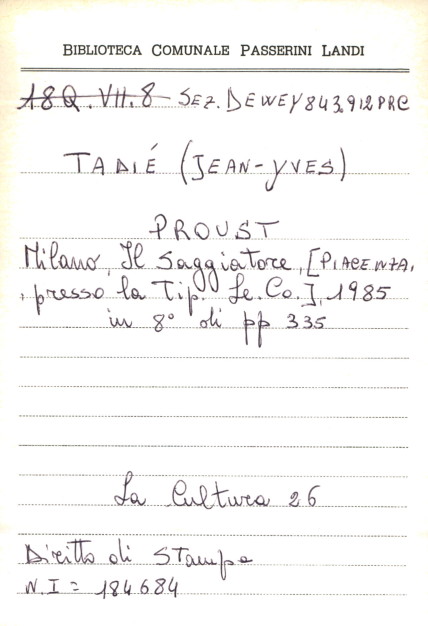 BIBLIOTECA COMUNALE PASSERINI LANDI
18Q.VII.8 SEZ. DEWEY 843.912 PRC
TADIÉ (JEAN-YVES)
PROUST
Milano, Il Saggiatore, [PIACENZA,
, presso la Tip. Le.Co.], 1985
in 8° di pp 335
La Cultura 26
Diritto di Stampa
N.I = 184684